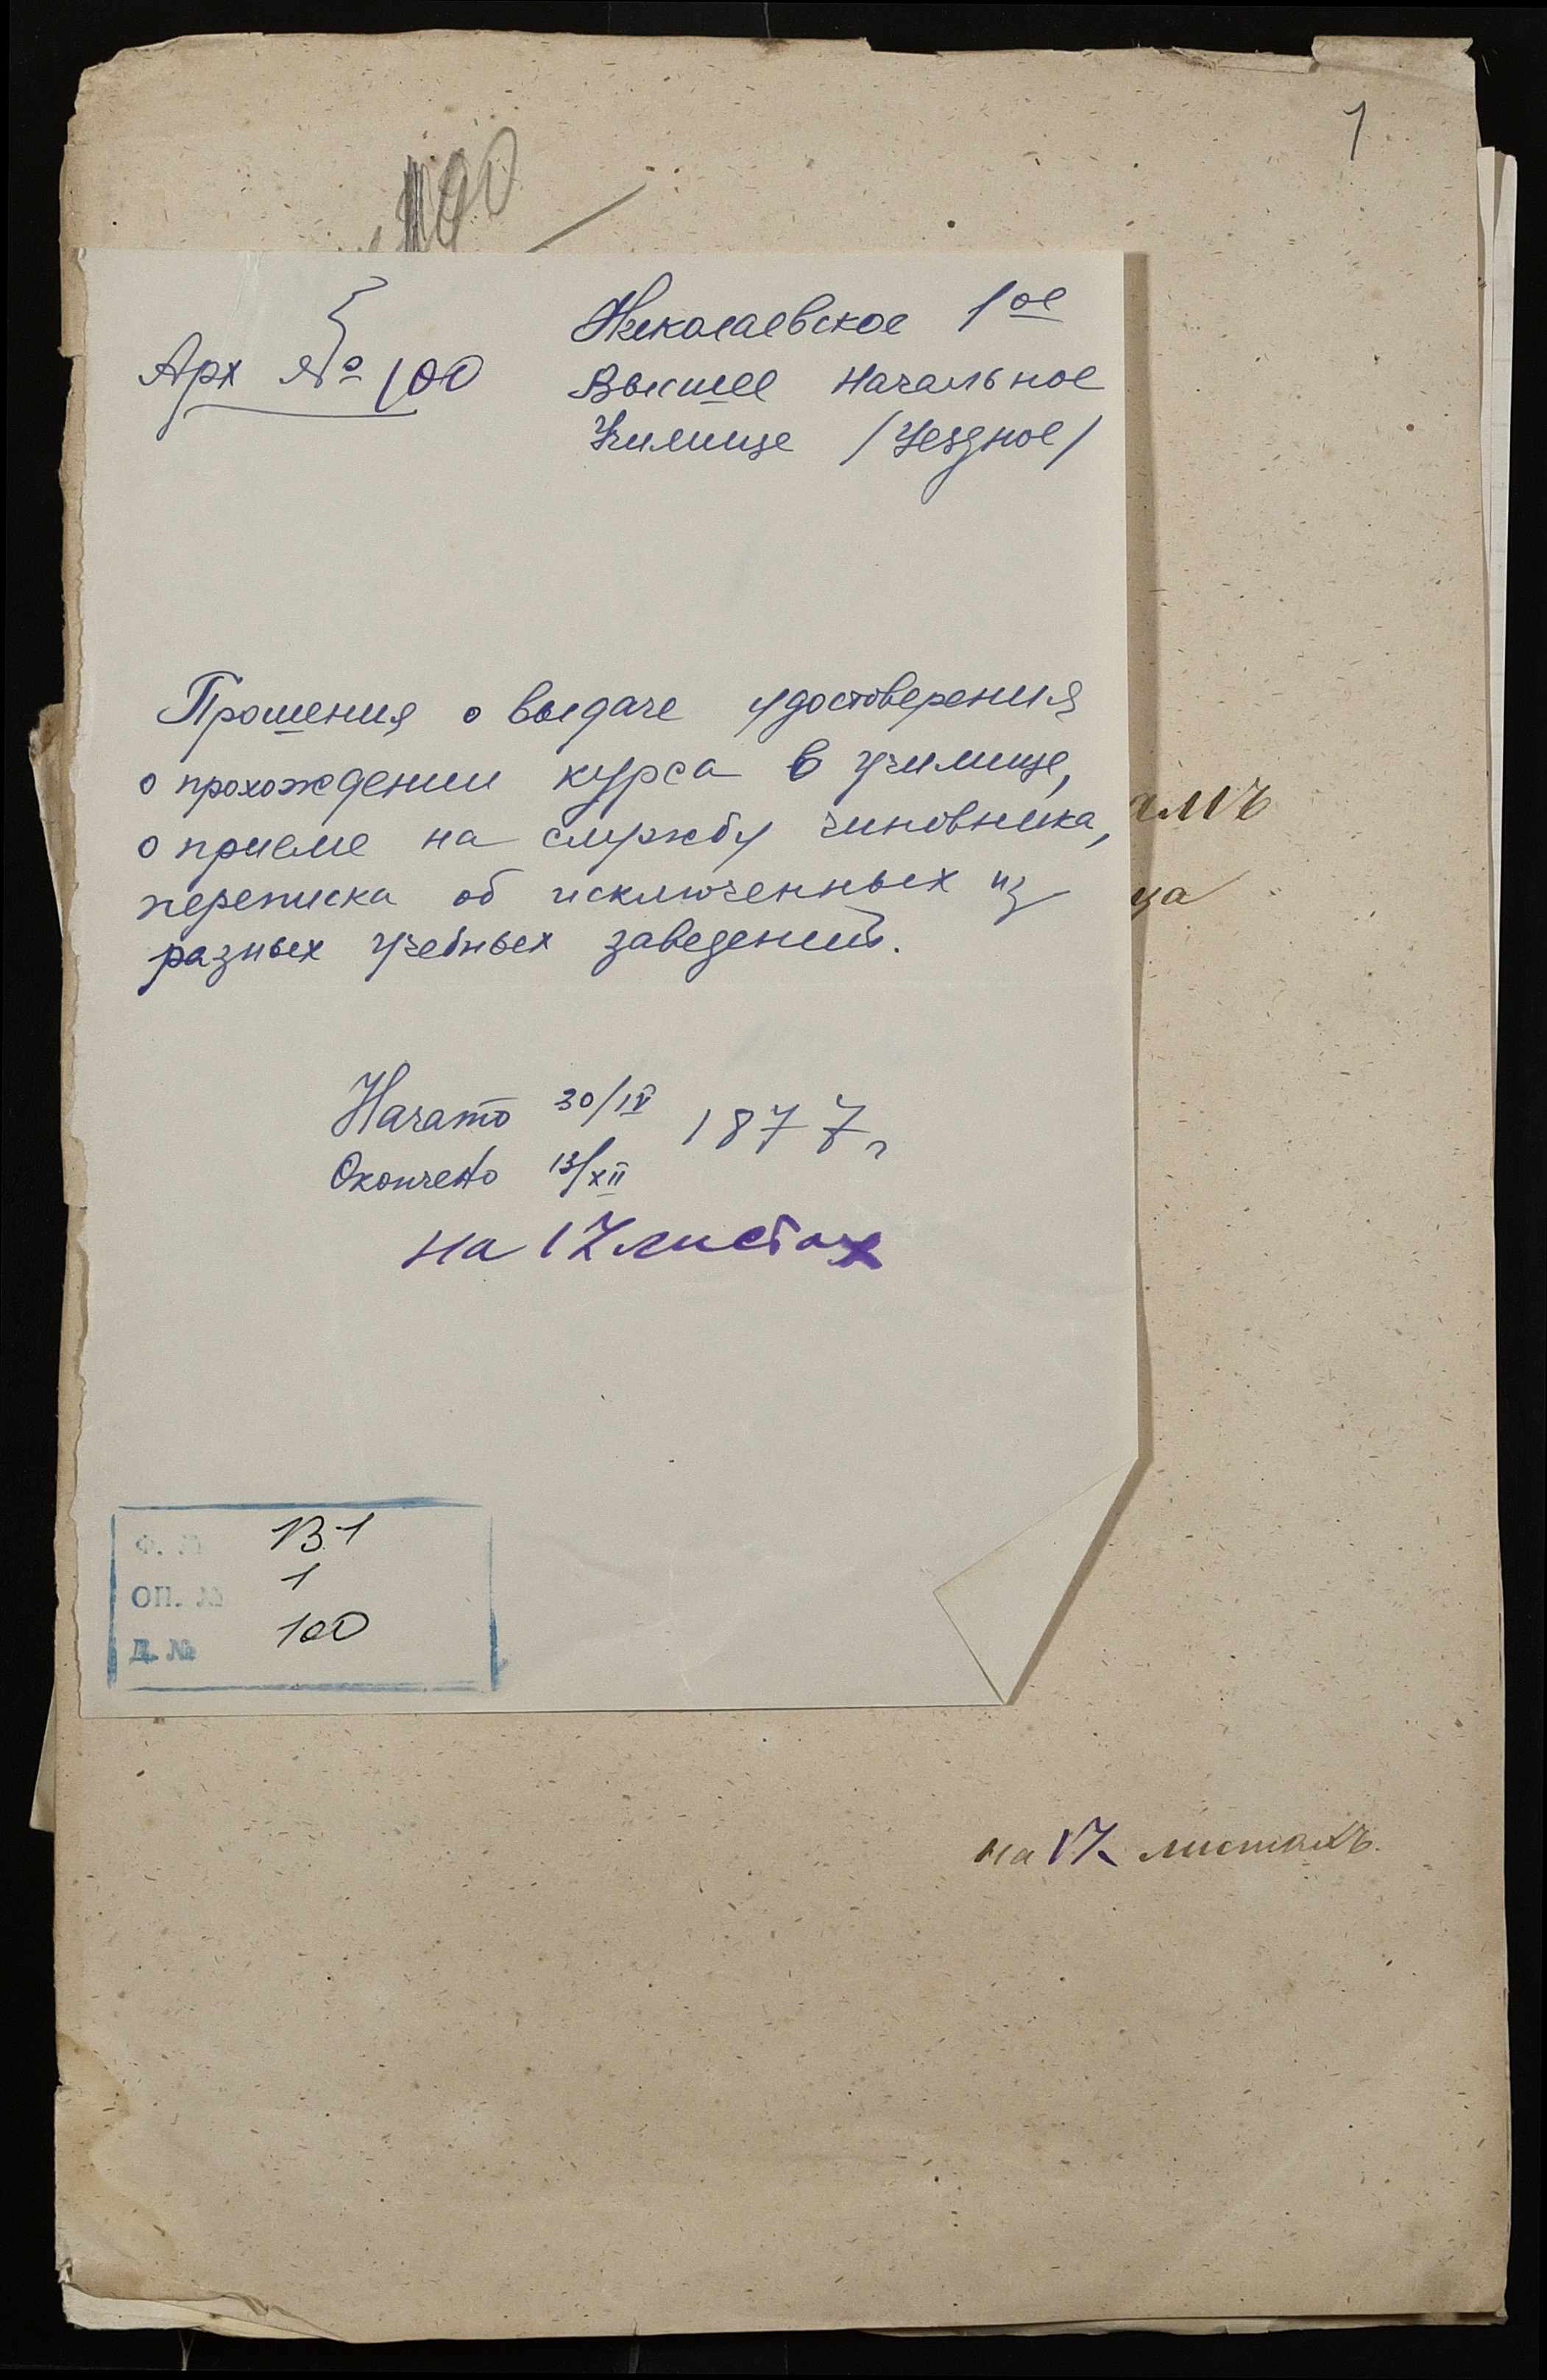 1
100
Арх № 100
Николаевское 1ое
Высшее Начальное
Училище /Уездное/
Прошения о выдаче удостоверения
о прохождении курса в училище,
о приеме на службу чиновника,
переписка об исключенных из
разных учебных заведений.
Начато 30/IV 1877 г
Окончено 13/XII
на 17 листах
Ф. № 131
ОП. № 1
Д. № 100
амъ
ца
на 17 листахъ.